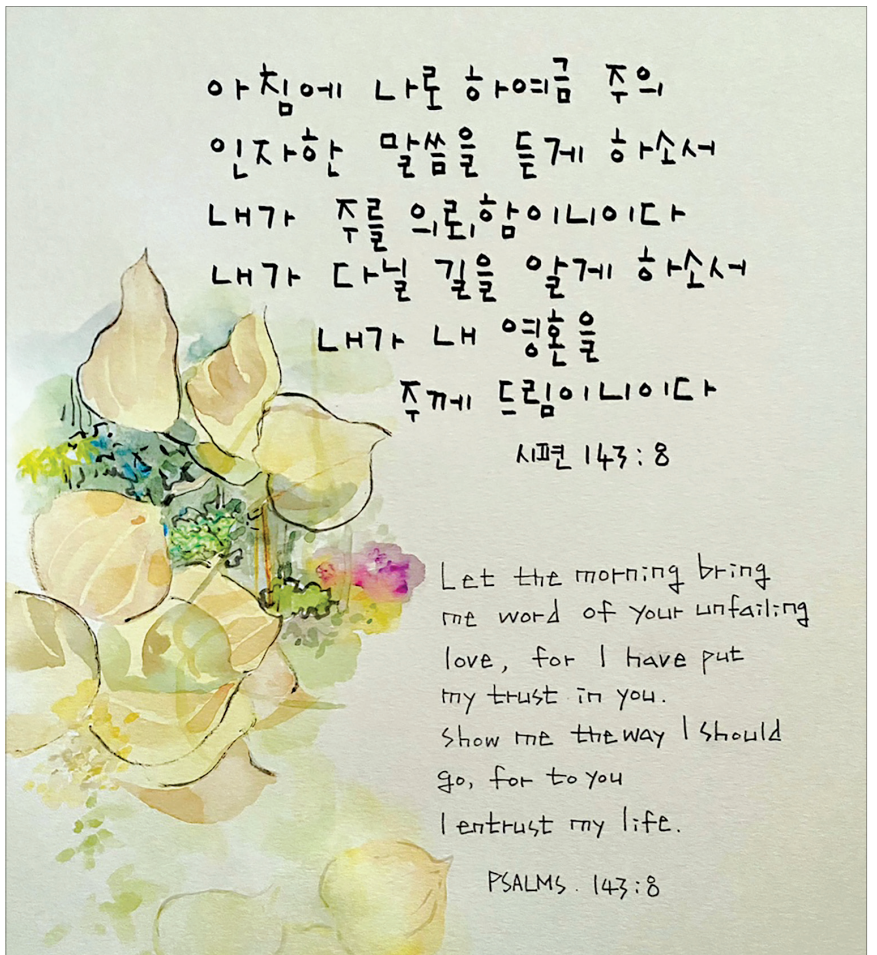 아침에 나로 하여금 주의
인자한 말씀을 듣게 하소서
내가 주를 의뢰함이니이다
내가 다닐 길을 알게 하소서
내가 내 영혼을
주께 드림이니이다
시편 143:8
Let the morning bring
me word of your unfailing
love, for I have put
my trust in you.
Show me the way I should
go, for to you
I entrust my life.
PSALMS. 143:8